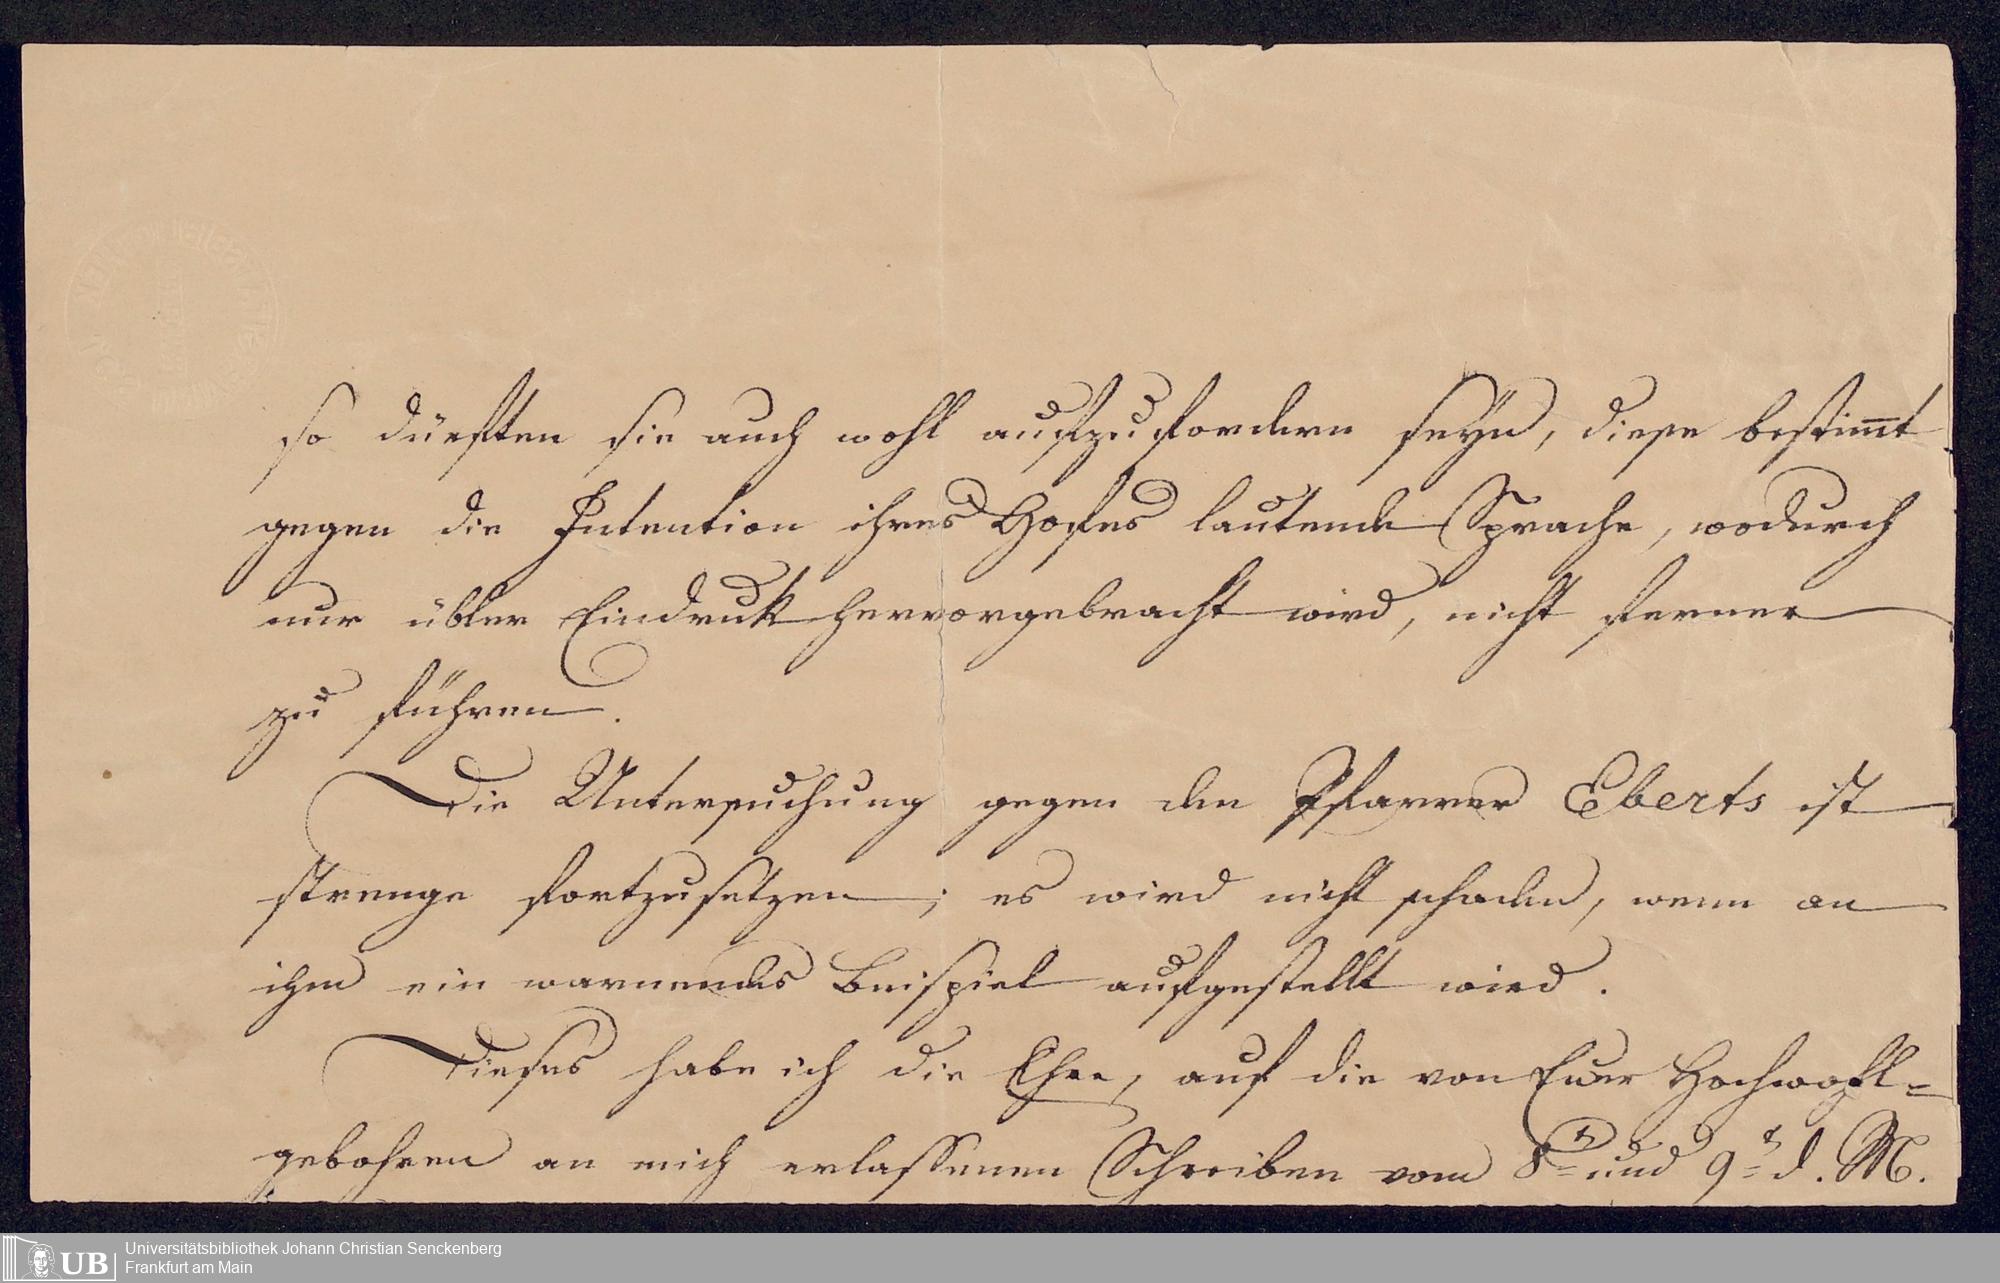 so dürften sie auch wohl aufzufordern seyn, diese bestim̄t
gegen die Intention ihres Hofes lautende Sprache, wodurch
nur übler Eindruk hervorgebracht wird, nicht ferner
zu führen.
Die Untersuchung gegen den Pfarrer Eberts ist
strenge fortzusetzen; es wird nicht schaden, wenn an
ihm ein warnendes Beispiel aufgestellt wird.
Dieses habe ich die Ehre, auf die von Euer Hochwohl=
gebohren an mich erlassenen Schreiben vom 8t und 9t d. M.
UB
Universitätsbibliothek Johann Christian Senckenberg
Frankfurt am Main